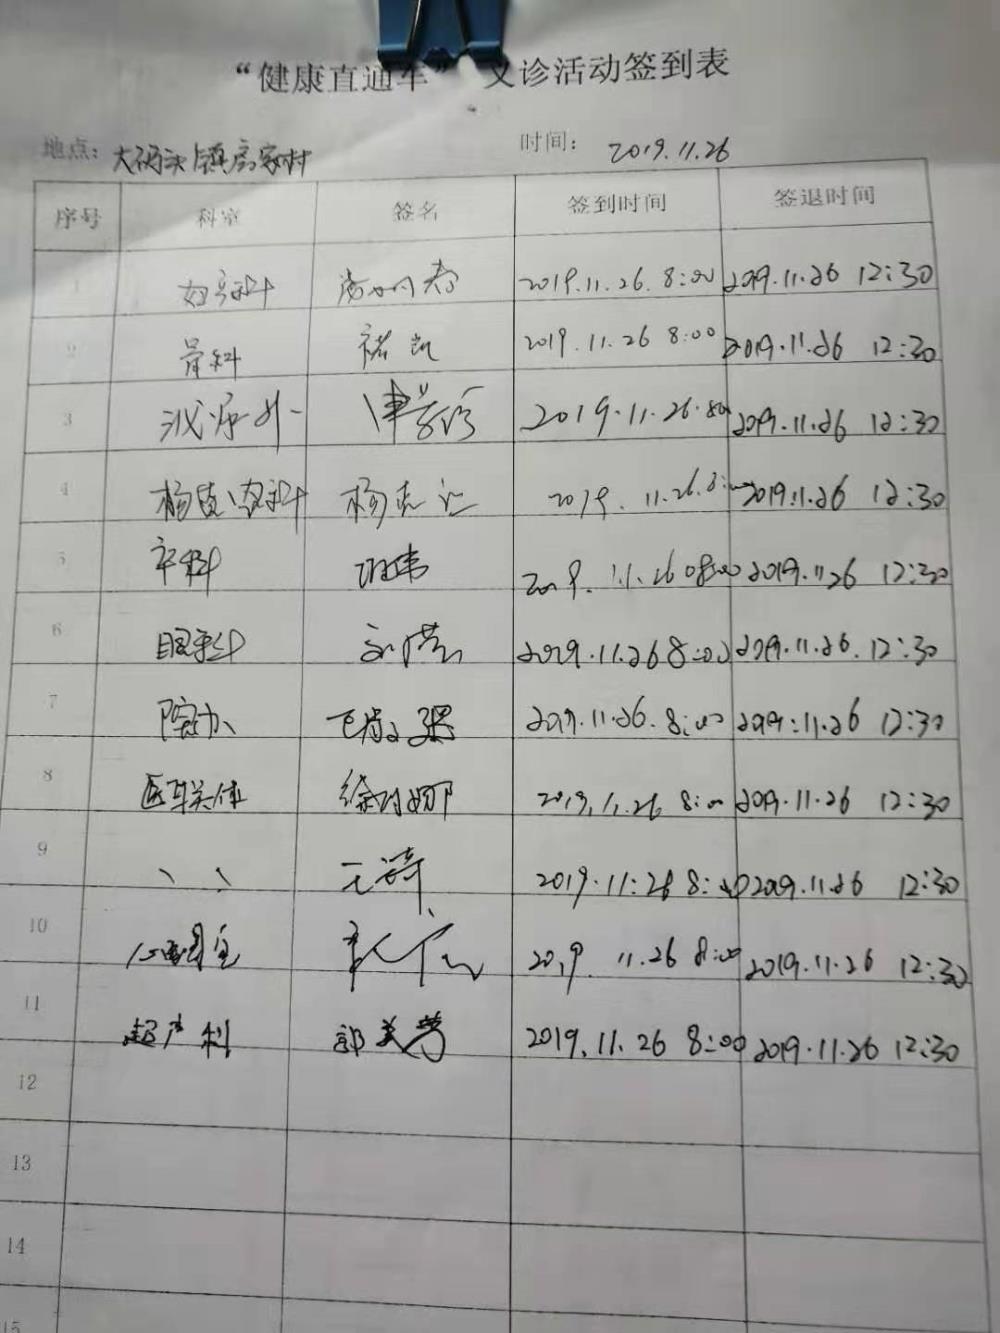 “健康直通车” 义诊活动签到表
地点: 大码头镇高家村 时间: 2019.11.26
序号 科室 签名 签到时间 签退时间
1 妇产科 2019.11.26 8:00 2019.11.26 12:30
2 骨科 褚凯 2019.11.26 8:00 2019.11.26 12:30
3 泌尿外一 2019.11.26.8:00 2019.11.26 12:30
4 2019.11.26.8:00 2019.11.26 12:30
5 2019.11.26 08:00 2019.11.26 12:30
6 眼科 2019.11.26 8:00 2019.11.26. 12:30
7 院办 2019.11.26.8:00 2019.11.26 12:30
8 医联体 2019.11.26 8:00 2019.11.26 12:30
9 、、 2019.11.26 8:00 2019.11.26 12:30
10 心电图室 2019.11.26 8:00 2019.11.26 12:30
11 超声科 郭美芳 2019.11.26 8:00 2019.11.26 12:30
12
13
14
15